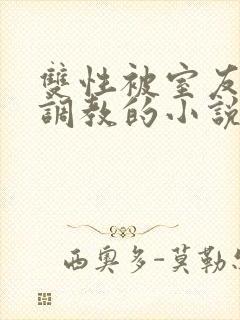 雙性被室友
調教的小說
西奧多-莫勒